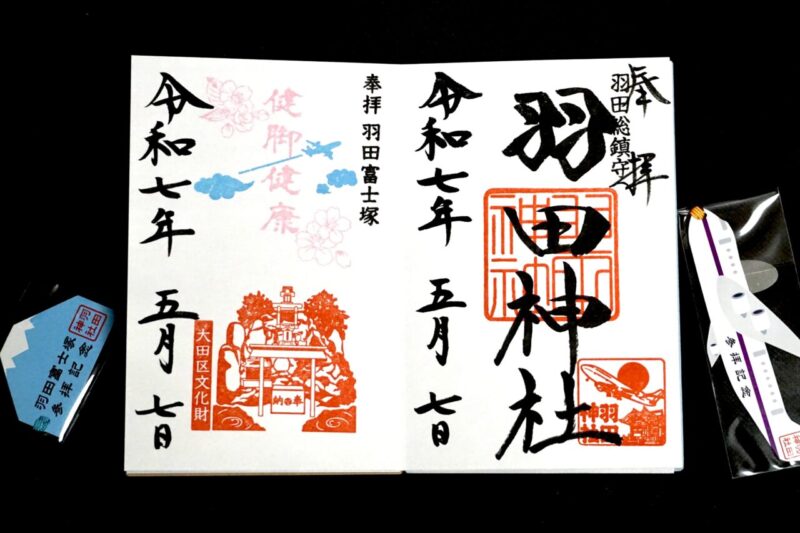 奉拝
羽田総鎮守
羽田神社
令和七年 五月 七日
羽田
奉拝 羽田富士塚
健脚健康
令和七年 五月 七日
大田区文化財
奉納
羽田神社
羽田富士塚
参拝記念
参拝記念
羽田神社